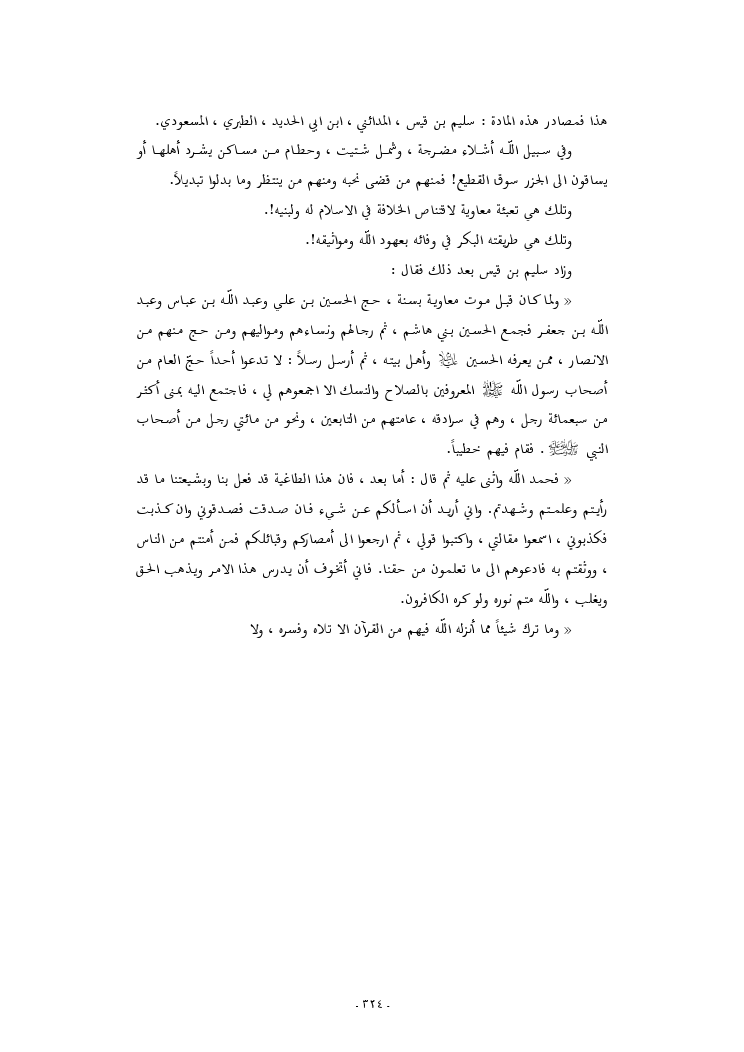 هذا فمصادر هذه المادة : سليم بن قيس ، المدائني ، ابن ابي الحديد ، الطبري ، المسعودي.
وفي سبيل اللّه أشلاء مضرجة ، وشمل شتيت ، وحطام من مساكن يشرد أهلها أو
يساقون الى الجزر سوق القطيع! فمنهم من قضى نحبه ومنهم من ينتظر وما بدلوا تبديلاً.
وتلك هي تعبئة معاوية لاقتناص الخلافة في الاسلام له ولبنيه!.
وتلك هي طريقته البكر في وفائه بعهود اللّه ومواثيقه!.
وزاد سليم بن قيس بعد ذلك فقال :
« ولما كان قبل موت معاوية بسنة ، حج الحسين بن علي وعبد اللّه بن عباس وعبد
اللّه بن جعفر فجمع الحسين بني هاشم ، ثم رجالهم ونساءهم ومواليهم ومن حج منهم من
الانصار ، ممن يعرفه الحسين عليه‌السلام وأهل بيته ، ثم أرسل رسلاً : لا تدعوا أحداً حجّ العام من
أصحاب رسول اللّه ﷺ المعروفين بالصلاح والنسك الا اجمعوهم لي ، فاجتمع اليه بمنى أكثر
من سبعمائة رجل ، وهم في سرادقه ، عامتهم من التابعين ، ونحو من مائتي رجل من أصحاب
النبي ﷺ . فقام فيهم خطيباً.
« فحمد اللّه واثنى عليه ثم قال : أما بعد ، فان هذا الطاغية قد فعل بنا وبشيعتنا ما قد
رأيتم وعلمتم وشهدتم. واني أريد أن اسألكم عن شيء فان صدقت فصدقوني وان كذبت
فكذبوني ، اسمعوا مقالتي ، واكتبوا قولي ، ثم ارجعوا الى أمصاركم وقبائلكم فمن أمنتم من الناس
، ووثقتم به فادعوهم الى ما تعلمون من حقنا. فاني أتخوف أن يدرس هذا الامر ويذهب الحق
ويغلب ، واللّه متم نوره ولو كره الكافرون.
« وما ترك شيئاً مما أنزله اللّه فيهم من القرآن الا تلاه وفسره ، ولا
- ٣٢٤ -